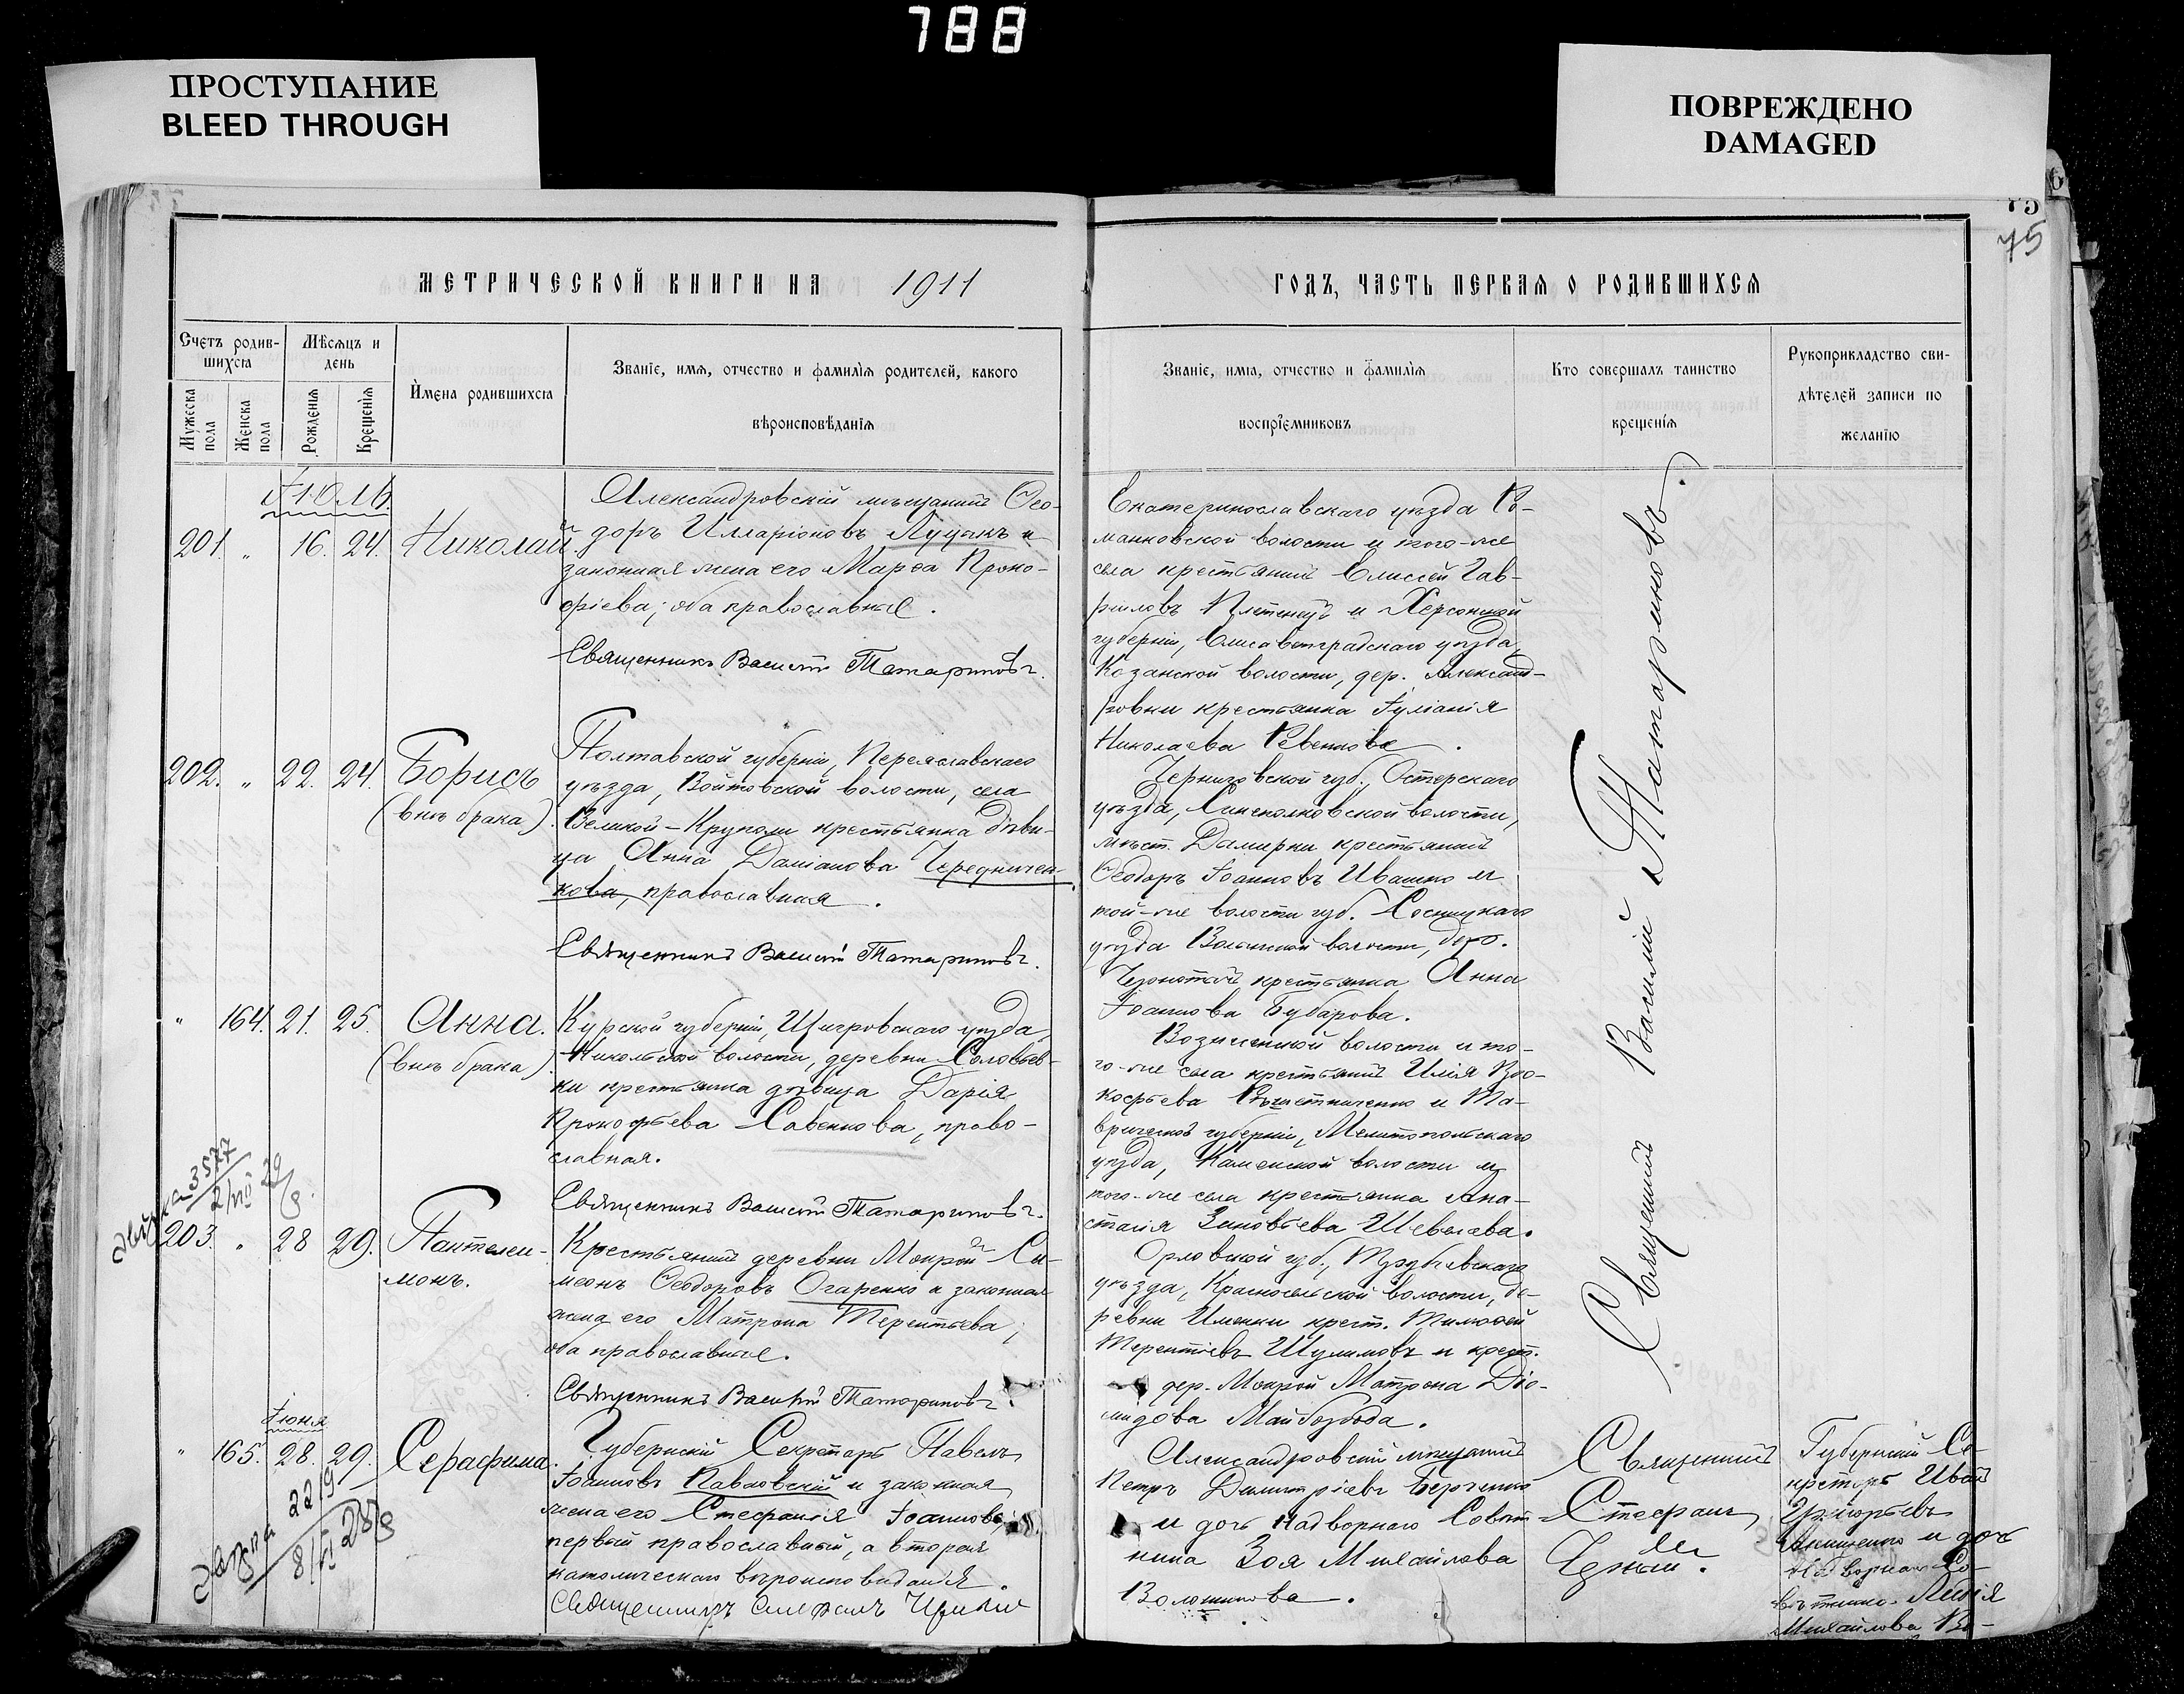 788
ПРОСТУПАНИЕ
BLEED THROUGH
ПОВРЕЖДЕНО
DAMAGED
75
75
МЕТРИЧЕСКОЙ КНИГИ НА 1911
ГОДЪ, ЧАСТЬ ПЕРВАЯ О РОДИВШИХСЯ
Счетъ родив-
шихся
Мужеска пола
Женска пола
Мѣсяцъ и
день
Рожденія
Крещенія
Имена родившихся
Званіе, имя, отчество и фамилія родителей, какого
вѣроисповѣданія
Званіе, имя, отчество и фамилія
воспріемниковъ
Кто совершалъ таинство
крещенія
Рукоприкладство сви-
дѣтелей записи по
желанію
Іюль
201. " 16. 24. Николай
Александровскій мѣщанинъ Ѳео-
доръ Илларіоновъ Луцыкъ и
законная жена его Марѳа Проко-
фіева; оба православные.
Священникъ Василій Татариновъ.
Екатеринославскаго уѣзда Ро-
манковской волости и того-же
села крестьянинъ Елисей Гав-
риловъ Плетенецъ и Херсонской
губерніи, Елисаветградскаго уѣзда,
Казанской волости, дер. Александ-
ровки крестьянка Іуліанія
Николаева Ревенкова.
202. " 22. 24. Борисъ
(внѣ брака).
Полтавской губерніи, Переяславскаго
уѣзда, Войтовской волости, села
Великой-Круполи крестьянка дѣви-
ца Анна Даміанова Чередничен-
кова, православная.
Священникъ Василій Татариновъ.
Черниговской губ., Остерскаго
уѣзда, волости,
мѣст. Дымерки крестьянинъ
Ѳеодоръ Іоанновъ Ивашко и
той-же волости губ. Сосницкаго
уѣзда Волынской волости, дер.
крестьянка Анна
Іоаннова Бубарова.
" 164. 21. 25. Анна.
(внѣ брака).
Курской губерніи, Щигровскаго уѣзда
Никольской волости, деревни Соловьев-
ки крестьянка дѣвица Дарія
Прокофьева Савенкова, право-
славная.
Священникъ Василій Татариновъ.
волости и то-
го-же села крестьянинъ Илія Про-
кофьева и Та-
врической губерніи, Мелитопольскаго
уѣзда, Каменской волости и
того-же села крестьянка Ана-
стасія Зиновьева Шевелева.
3577
203. " 28 29. Пантелеи-
монъ.
Крестьянинъ деревни Мокрой Си-
меонъ Ѳеодоровъ Огаренко и законная
жена его Матрона Терентьева;
оба православные.
Священникъ Василій Татариновъ.
Орловской губ., Трубчевскаго
уѣзда, Красносельской волости, де-
ревни крест. Тимоѳей
Терентіевъ Шулимовъ и крест.
дер. Мокрой Матрона Діо-
мидова Майборода.
Священникъ Василій Татариновъ.
Іюня
" 165. 28. 29. Серафима.
Губернскій Секретарь Павелъ
Іоанновъ Павловскій и законная
жена его Стефанія Іоаннова,
первый православный, а вторая
католическаго вѣроисповѣданія.
Священникъ Стефанъ
Александровскій мѣщанинъ
Петръ Димитріевъ
и дочь Надворнаго Совѣт-
ника Зоя Михайлова
Волошинова.
Священникъ
Стефанъ
Губернскій Се-
кретарь Иванъ
Григорьевъ
и дочь
Надворнаго Со-
вѣтника Лидія
Михайлова Во-